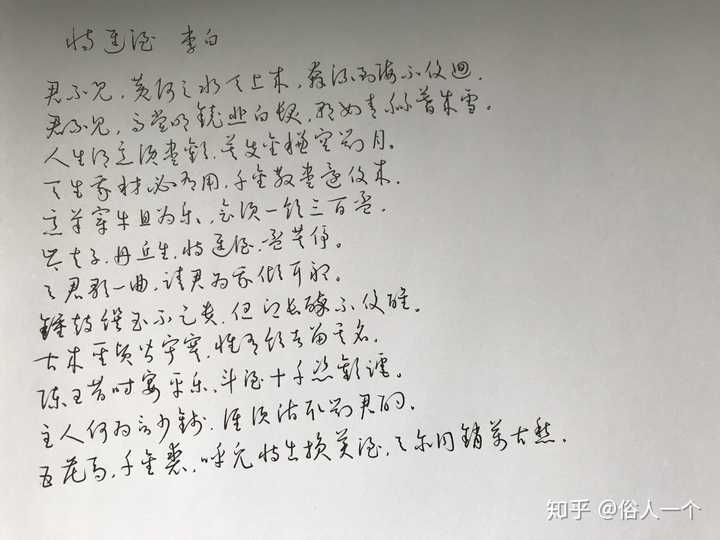 将进酒 李白
君不见,黄河之水天上来,奔流到海不復迴.
君不见,高堂明镜悲白髮,朝如青丝暮成雪。
人生得意须尽歡,莫使金樽空對月。
天生我材必有用,千金散尽還復来.
烹羊宰牛且为乐,会须一饮三百盃.
岑夫子,丹丘生,将進酒,盃莫停。
与君歌一曲,請君为我倾耳听。
鍾鼓饌玉不足贵,但願长醉不復醒。
古来聖贤皆寂寞,惟有饮者留其名.
陈王昔时宴平乐,斗酒十千恣歡謔。
主人何为言少錢,徑须沽取對君酌.
五花马,千金裘,呼兒将出换美酒,与尔同銷萬古愁.
知乎 @俗人一个